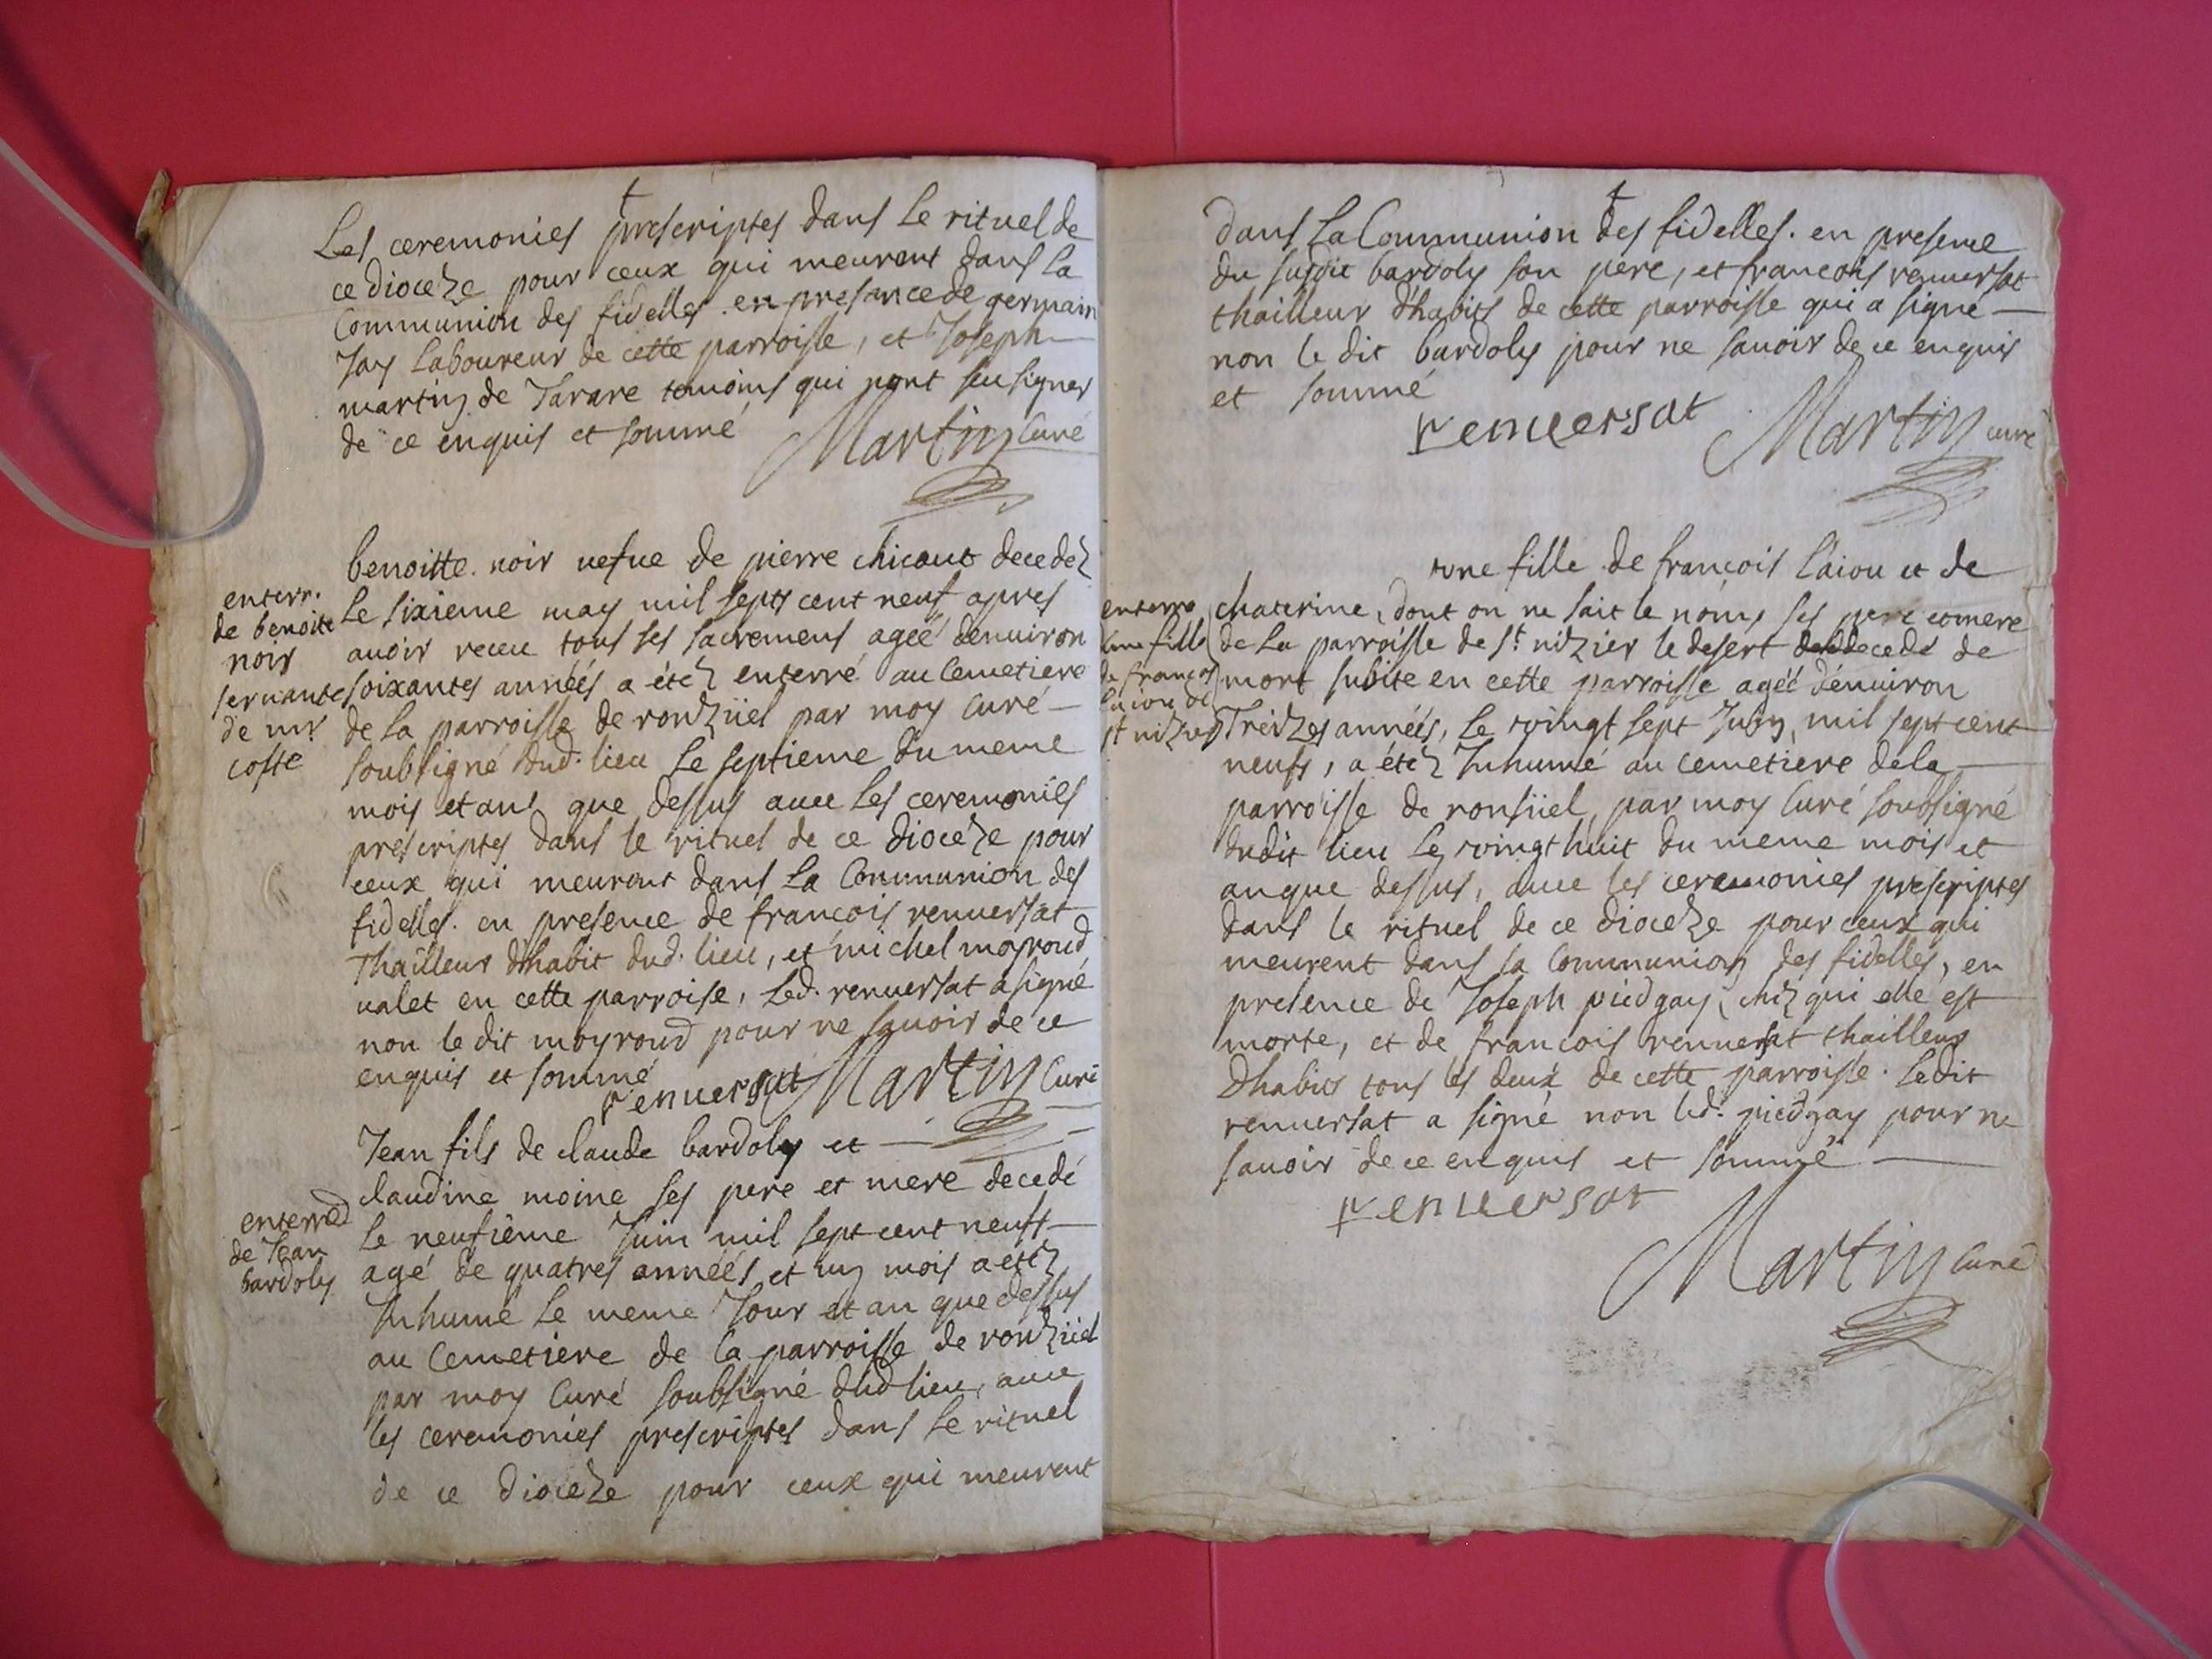 Les ceremonies prescriptes dans le rituel de
ce dioceze pour ceux qui meurent dans la
Communion des fidelles. en presance de germain
Jay laboureur de cette parroisse, et Joseph
martin de Tarare temoins qui nont seu signer
de ce enquis et sommé
Martin Curé
enterr.
de benoite
noir
servante
de mr
coste
benoitte noir vefue de pierre chicaut decedez
Le sixieme may mil septs cent neuf apres
auoir receu tous ses sacremens ageé denuiron
soixantes années a étéz enterré au Cemetiere
de la parroisse de ronzüel par moy Curé
soubsigné dud. lieu le septieme du meme
mois et ans que dessus auec les ceremonies
prescriptes dans le rituel de ce dioceze pour
ceux qui meurent dans la Communion des
fidelles. en presence de francois renuersat
Thailleur dhabit dud. lieu, et michel moyroud
ualet en cette parroise, led. renuersat a signé
non le dit moyroud pour ne sçauoir de ce
enquis et sommé
renuersat Martin Curé
enterré
de Jean
bardoly
Jean fils de claude bardoly et
claudine moine ses pere et mere decedé
le neufième Juin mil sept cent neufs
agé de quatres années et un mois a étéz
Inhumé le meme Jour et an que dessus
au Cemetiere de la parroisse de ronzüel
par moy Curé soubsigné dud lieu, auec
les ceremonies prescriptes dans le rituel
de ce dioceze pour ceux qui meurent
dans La Communion des fidelles. en presence
du susdit bardoly son pere, et francois renuersat
thailleur dhabits de cette parroisse qui a signé
non le dit bardoly pour ne sauoir de ce enquis
et sommé
renuersat Martin curé
enterré
dune fille
de francois
laiou de
st nizier
une fille de francois laiou et de
chaterine, dont on ne sait le nom, ses pere et mere
de La parroisse de st nizier le desert decede de
mort subite en cette parroisse ageé dénuiron
Treizes années, le vingt sept Juin, mil sept cent
neufs, a étéz Inhumé au cemetiere de la
parroisse de ronsüel, par moy Curé soubsigné
dudit lieu le vingt huit du meme mois et
an que dessus, auec les ceremonies prescriptes
dans le rituel de ce dioceze pour ceux qui
meurent dans la Communion des fidelles, en
presence de Joseph piedgay, chéz qui elle est
morte, et de francois renuersat thailleur
Dhabits tous les deux de cette parroisse. Ledit
renuersat a signé non led. piedgay pour ne
sauoir de ce enquis et sommé
renuersat
Martin Curé